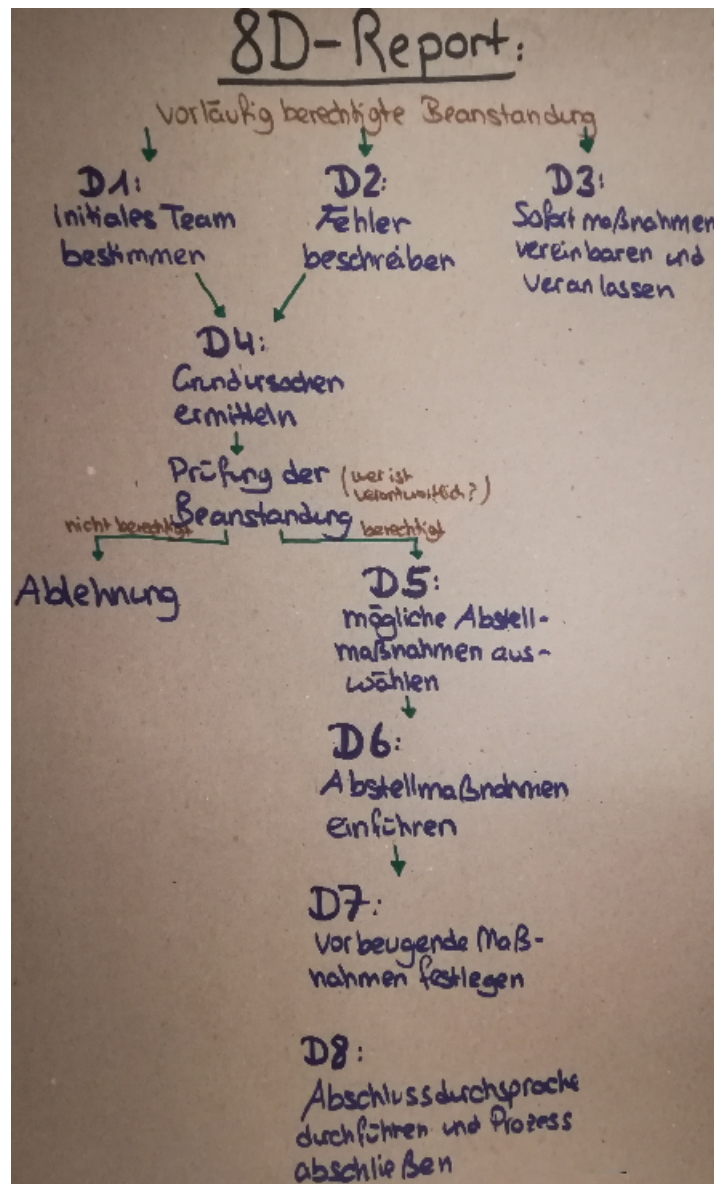 8D-Report:
vorläufig berechtigte Beanstandung
D1:
Initiales Team
bestimmen
D2:
Fehler
beschreiben
D3:
Sofortmaßnahmen
vereinbaren und
veranlassen
D4:
Grundursachen
ermitteln
Prüfung der (wer ist
verantwortlich?)
Beanstandung
nicht berechtigt
berechtigt
Ablehnung
D5:
mögliche Abstell-
maßnahmen aus-
wählen
D6:
Abstellmaßnahmen
einführen
D7:
Vorbeugende Maß-
nahmen festlegen
D8:
Abschlussdurchsprache
durchführen und Prozess
abschließen